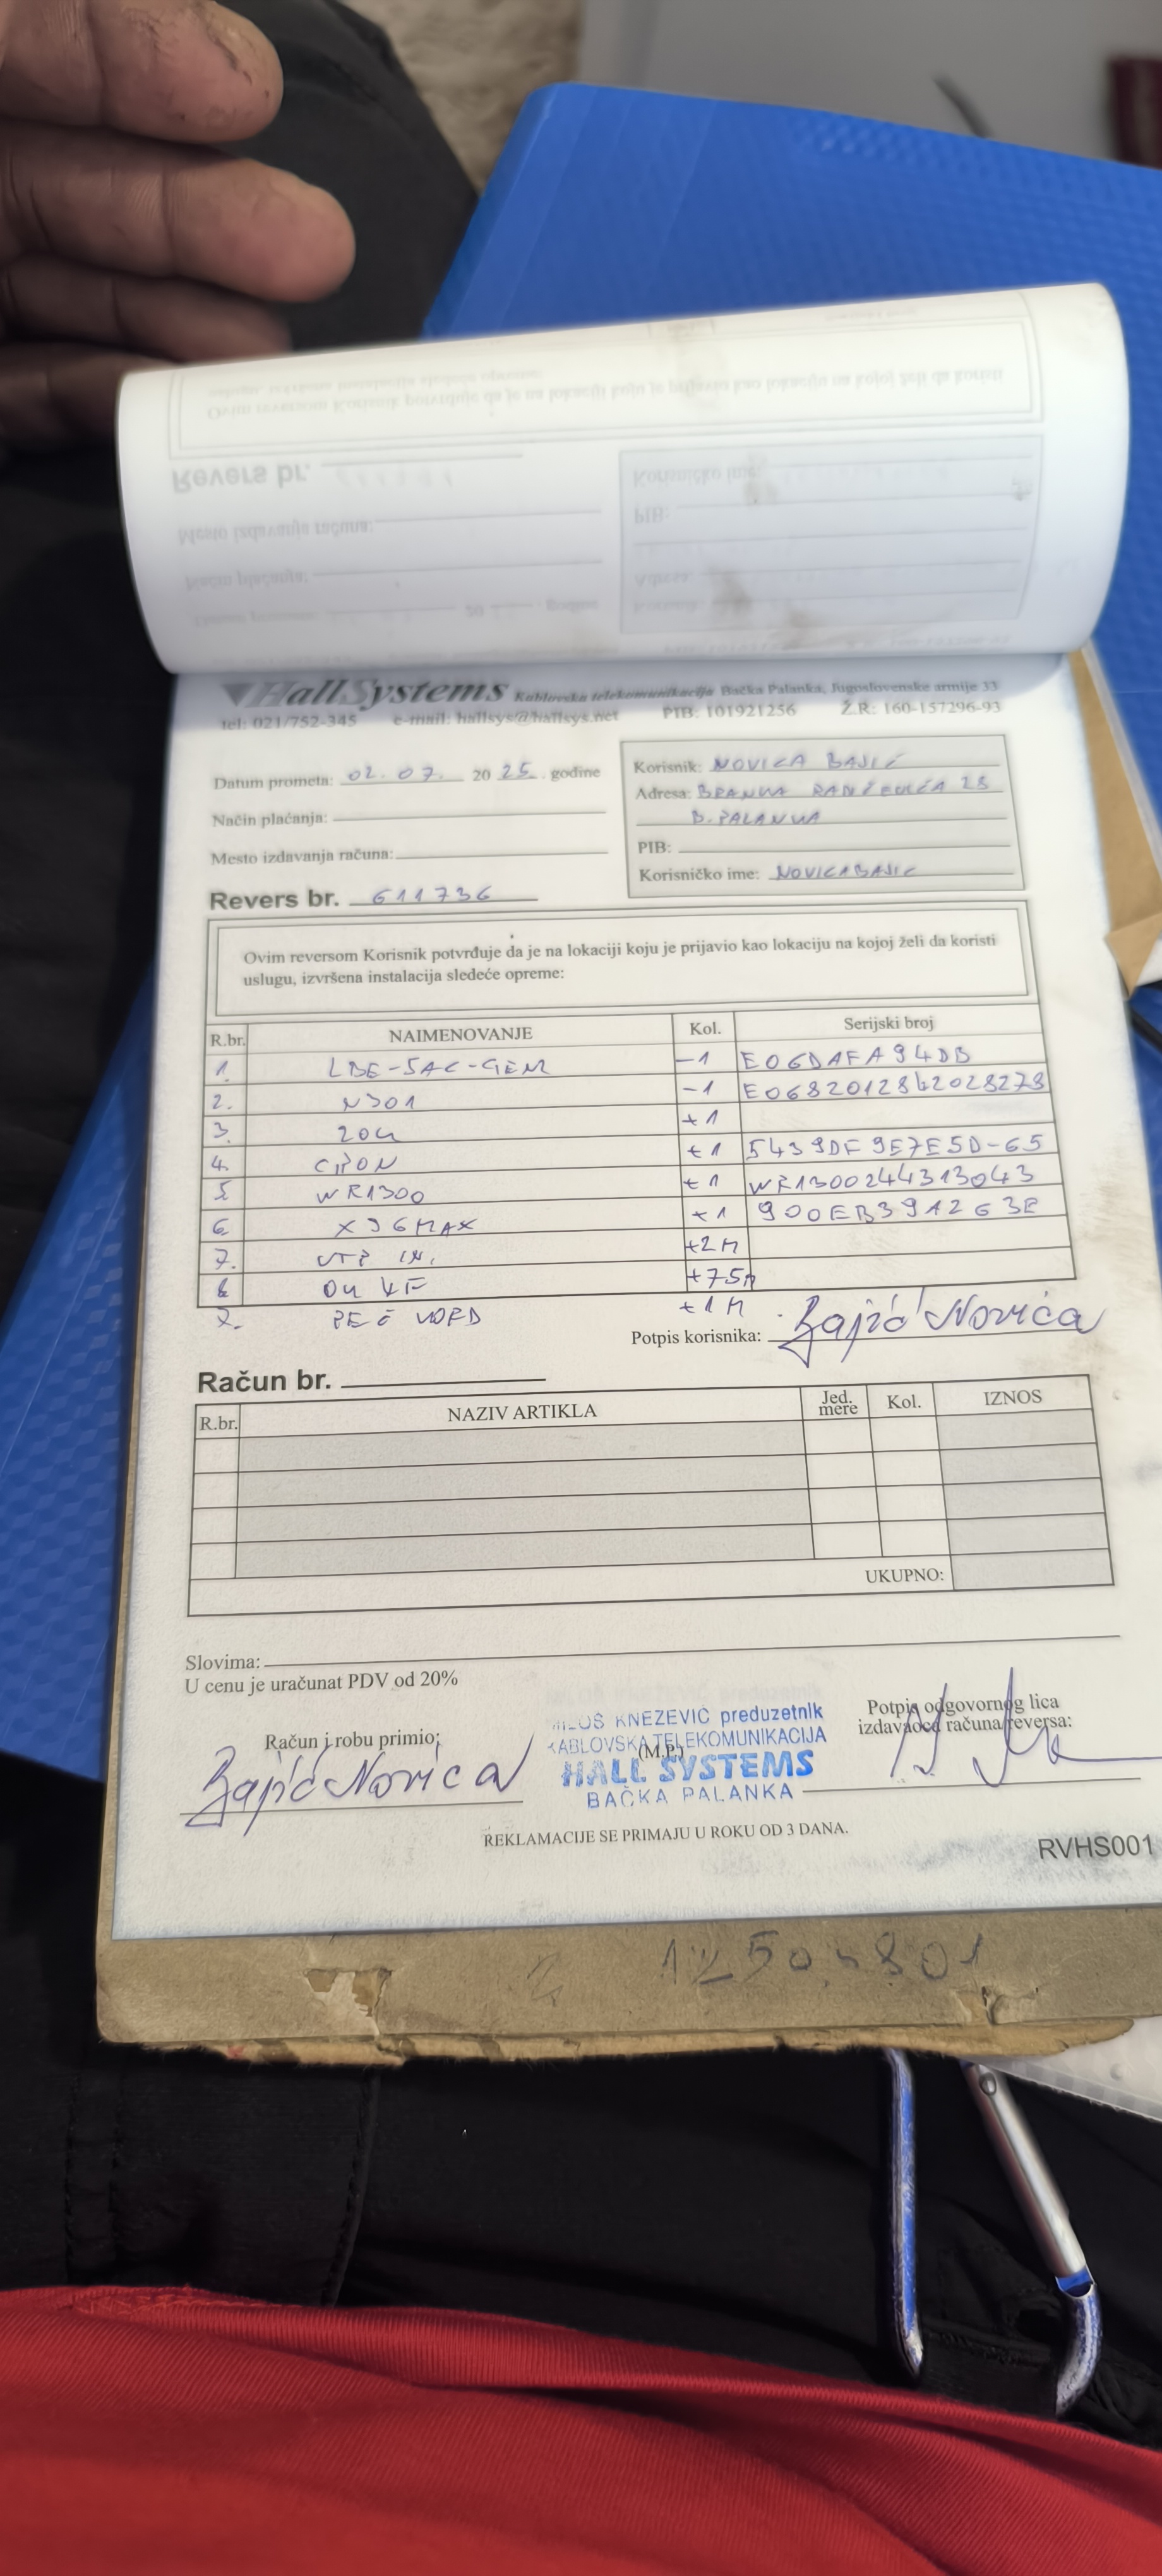 HallSystems Kablovska telekomunikacija Bačka Palanka, Jugoslovenske armije 33
tel: 021/752-345 e-mail: hallsys@hallsys.net PIB: 101921256 Ž.R: 160-157296-93
Datum prometa: 02.07. 2025. godine
Način plaćanja:
Mesto izdavanja računa:
Revers br. 611736
Korisnik: NOVICA BAJIĆ
Adresa: 25
B. PALANKA
PIB:
Korisničko ime: NOVICABAJIC
Ovim reversom Korisnik potvrđuje da je na lokaciji koju je prijavio kao lokaciju na kojoj želi da koristi
uslugu, izvršena instalacija sledeće opreme:
R.br. NAIMENOVANJE Kol. Serijski broj
1. LBE-5AC-GEN -1 E06DAFA94DB
2. N301 -1 E0682012842028278
3. +1
4. GPON +1 5439DF9E7E5D-65
5 WR1300 +1 WR1300244313043
6 X96MAX +1 900EB391263E
7. UTP IN. +2M
8 +75M
+1M
Potpis korisnika: Bajić Novica
Račun br.
R.br. NAZIV ARTIKLA Jed. mere Kol. IZNOS
UKUPNO:
Slovima:
U cenu je uračunat PDV od 20%
Račun i robu primio:
Bajić Novica
MILOŠ KNEŽEVIĆ preduzetnik
KABLOVSKA TELEKOMUNIKACIJA
(M.P.)
HALL SYSTEMS
BAČKA PALANKA
Potpis odgovornog lica
izdavaoca računa/reversa:
REKLAMACIJE SE PRIMAJU U ROKU OD 3 DANA.
RVHS001